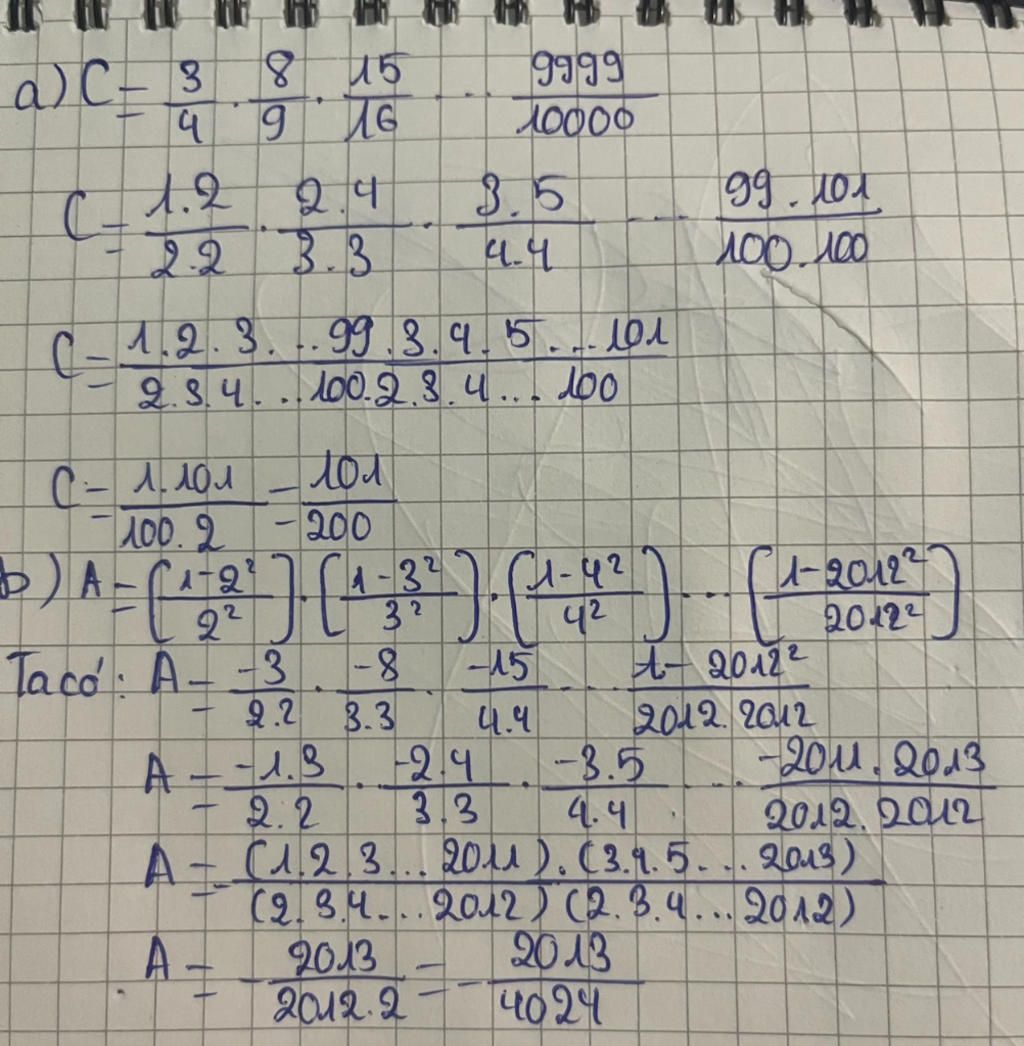 a) C = 3/4 . 8/9 . 15/16 ... 9999/10000
C = 1.2/2.2 . 2.4/3.3 . 3.5/4.4 ... 99.101/100.100
C = 1.2.3...99.3.4.5...101/2.3.4...100.2.3.4...100
C = 1.101/100.2 = 101/200
b) A = [1-2²/2²] . [1-3²/3²] . [1-4²/4²] ... [1-2012²/2012²]
Ta có: A = -3/2.2 . -8/3.3 . -15/4.4 ... 1-2012²/2012.2012
A = -1.3/2.2 . -2.4/3.3 . -3.5/4.4 ... -2011.2013/2012.2012
A = -(1.2.3...2011).(3.4.5...2013)/(2.3.4...2012)(2.3.4...2012)
A = -2013/2012.2 = -2013/4024